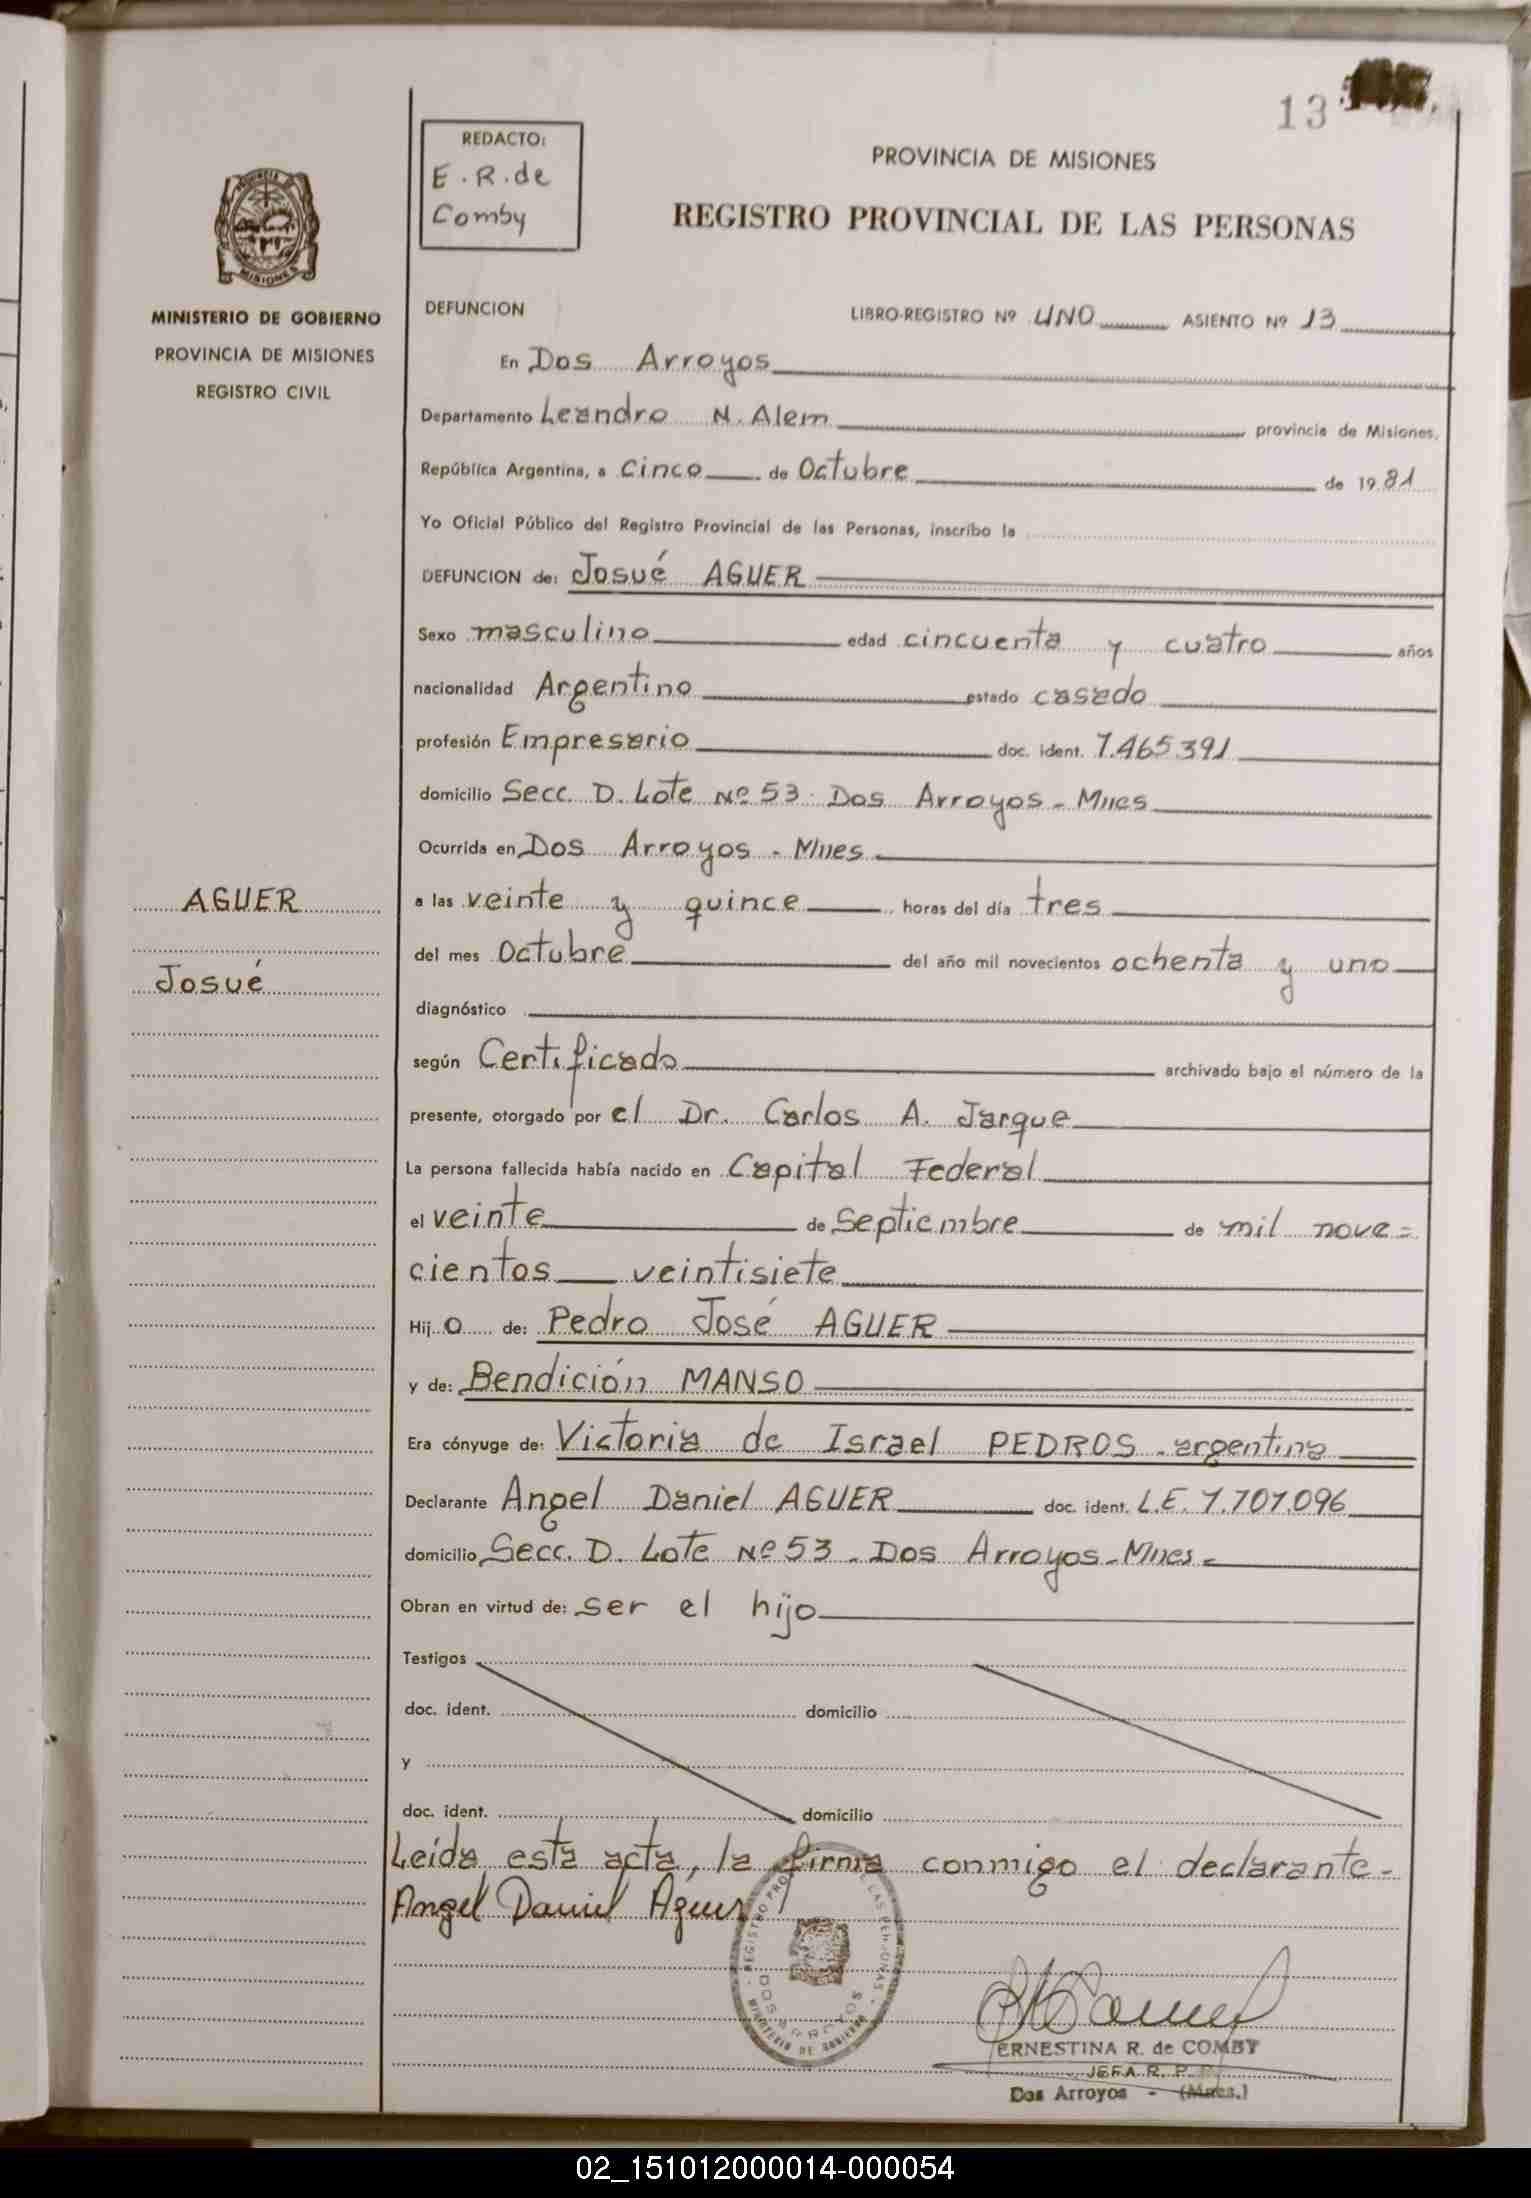 13
REDACTO:
E. R. de
Comby
PROVINCIA DE MISIONES
REGISTRO PROVINCIAL DE LAS PERSONAS
PROVINCIA DE
MISIONES
MINISTERIO DE GOBIERNO
PROVINCIA DE MISIONES
REGISTRO CIVIL
DEFUNCION LIBRO-REGISTRO Nº UNO ASIENTO Nº 13
En Dos Arroyos
Departamento Leandro N. Alem provincia de Misiones,
República Argentina, a Cinco de Octubre de 1981
Yo Oficial Público del Registro Provincial de las Personas, inscribo la
DEFUNCION de: Josué AGUER
Sexo masculino edad cincuenta y cuatro años
nacionalidad Argentino estado casado
profesión Empresario doc. ident. 7.465.391
domicilio Secc. D. Lote Nº 53. Dos Arroyos - Mnes
Ocurrida en Dos Arroyos - Mnes
AGUER
a las veinte y quince horas del día tres
del mes Octubre del año mil novecientos ochenta y uno
Josué
diagnóstico
según Certificado archivado bajo el número de la
presente, otorgado por el Dr. Carlos A. Jarque
La persona fallecida había nacido en Capital Federal
el veinte de Septiembre de mil nove=
cientos veintisiete
Hijo de: Pedro José AGUER
y de: Bendición MANSO
Era cónyuge de: Victoria de Israel PEDROS - argentina
Declarante Angel Daniel AGUER doc. ident. L.E. 7.707.096
domicilio Secc. D. Lote Nº 53 - Dos Arroyos - Mnes -
Obran en virtud de: ser el hijo
Testigos
doc. ident. domicilio
y
doc. ident. domicilio
Leída esta acta, la firma conmigo el declarante -
Angel Daniel Aguer
DOS ARROYOS
MINISTERIO DE GOBIERNO
ERNESTINA R. de COMBY
JEFA R. P. P.
Dos Arroyos - (Mnes.)
02_151012000014-000054